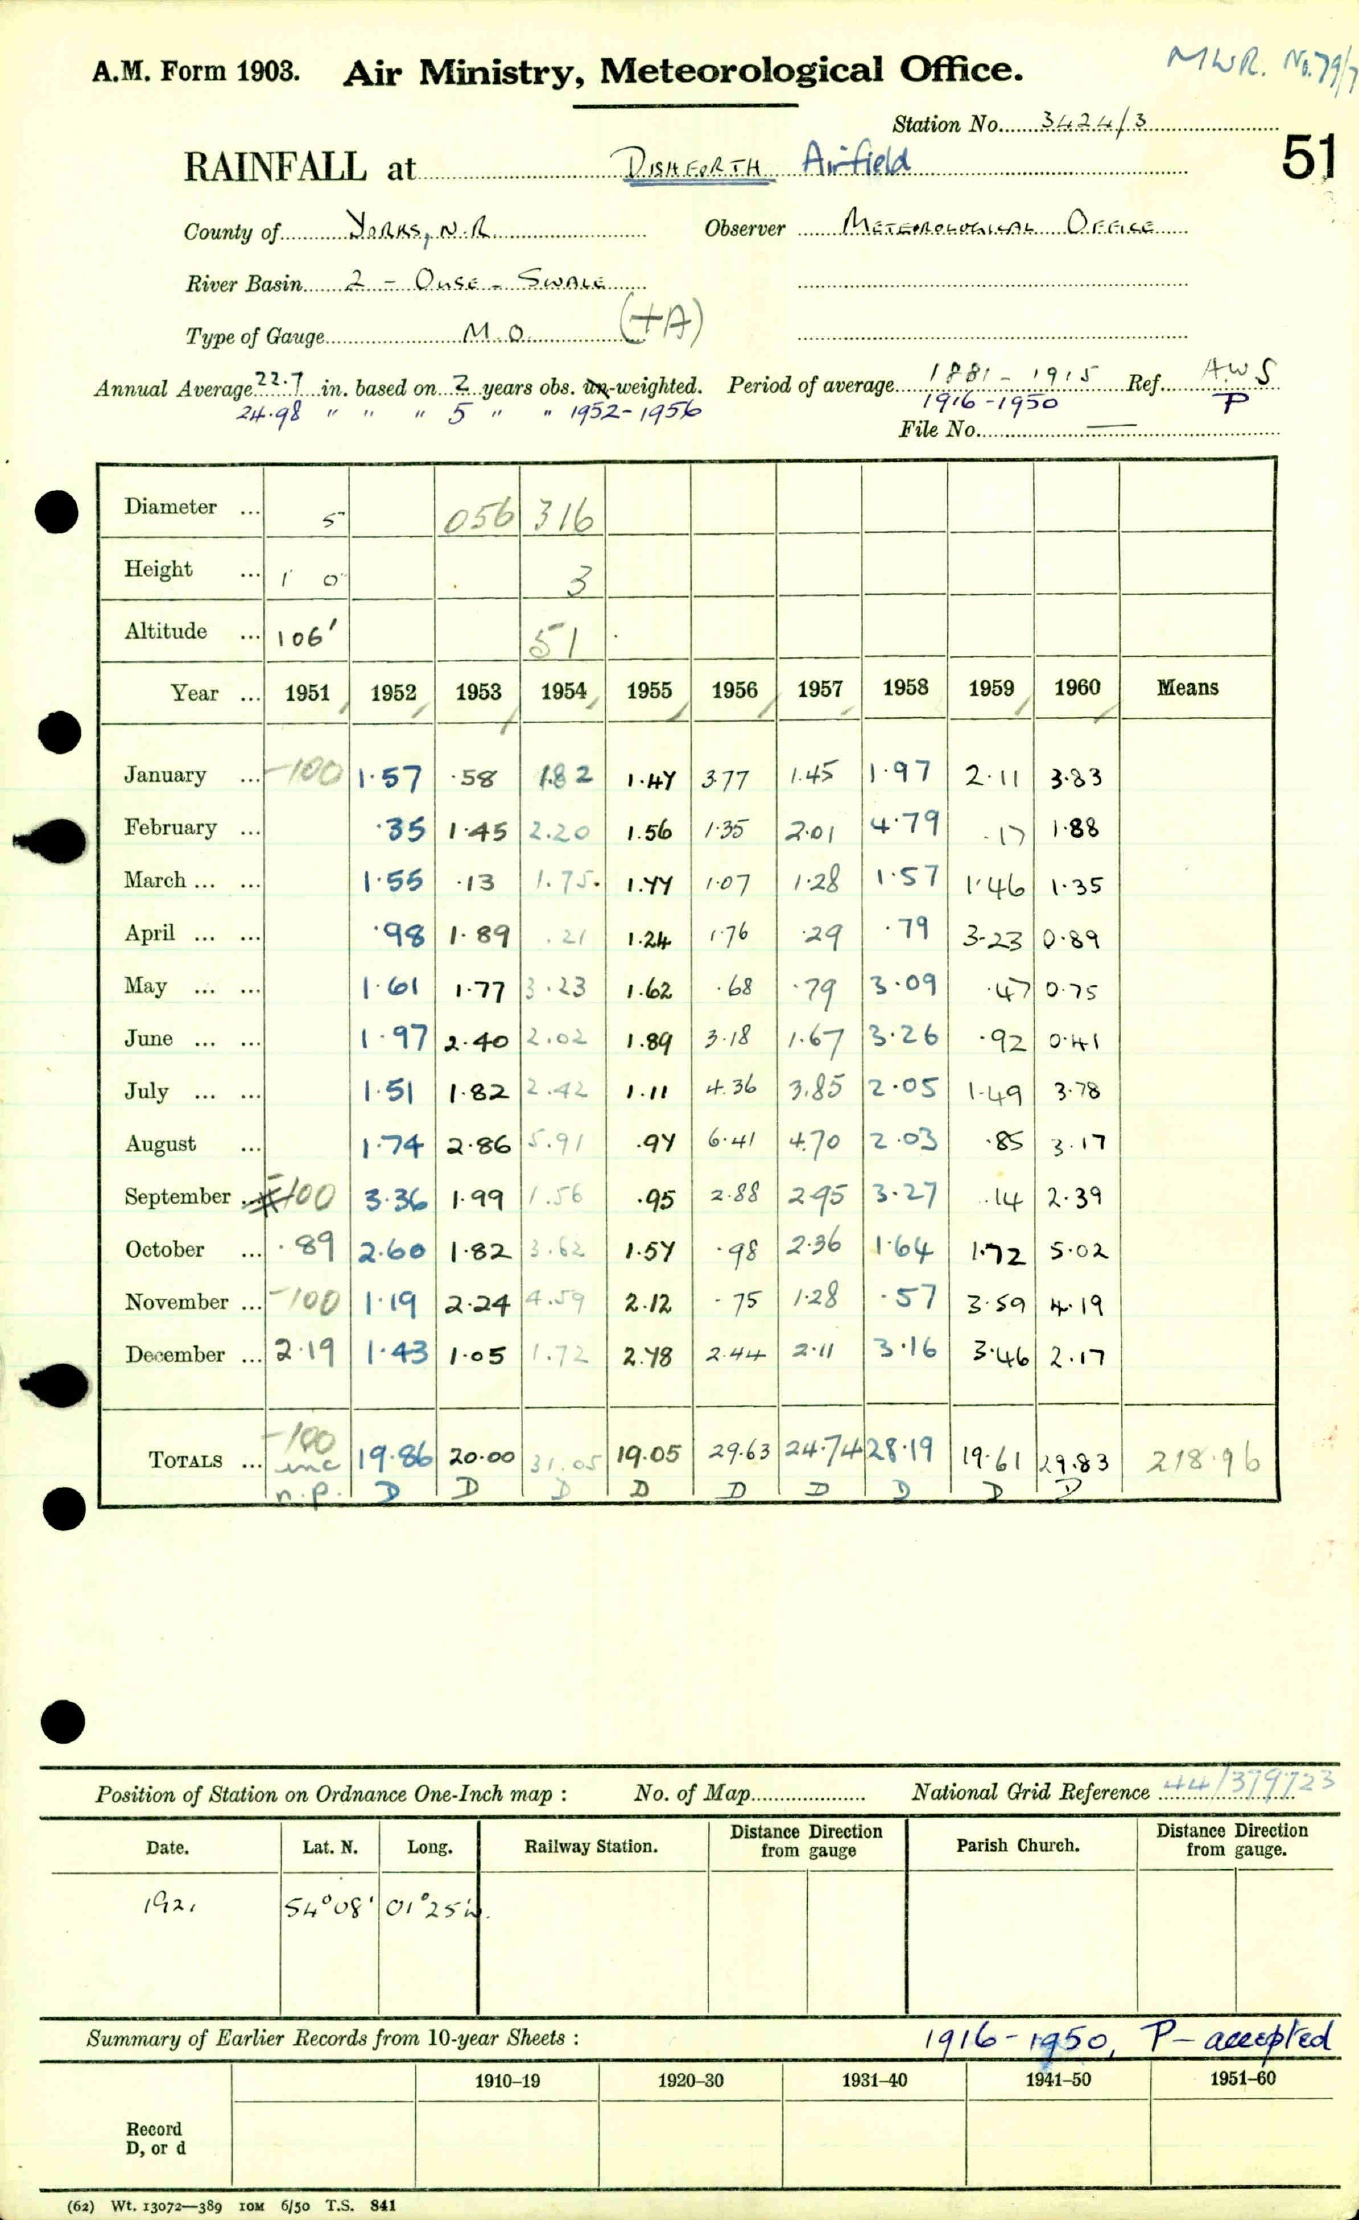 A.M. Form 1903. Air Ministry, Meteorological Office. MWR. No. 79/7
Station No. 3424/3
RAINFALL at DISHFORTH Airfield 51
County of YORKS, N.R. Observer METEOROLOGICAL OFFICE
River Basin 2 - OUSE - SWALE
Type of Gauge M.O. (+A)
Annual Average 22.7 in. based on 2 years obs. un-weighted. Period of average 1881-1915 Ref. A.W.S
24.98 " " " 5 " " 1952-1956 1916-1950 P
File No. —
Diameter ... 5 056 316
Height ... 1 0 3
Altitude ... 106' 51
Year ... 1951 1952 1953 1954 1955 1956 1957 1958 1959 1960 Means
January ... -100 1.57 .58 1.82 1.47 3.77 1.45 1.97 2.11 3.83
February ... .35 1.45 2.20 1.56 1.35 2.01 4.79 .17 1.88
March ... ... 1.55 .13 1.75 1.77 1.07 1.28 1.57 1.46 1.35
April ... ... .98 1.89 .21 1.24 1.76 .29 .79 3.23 0.89
May ... ... 1.61 1.77 3.23 1.62 .68 .79 3.09 .47 0.75
June ... ... 1.97 2.40 2.02 1.89 3.18 1.67 3.26 .92 0.41
July ... ... 1.51 1.82 2.42 1.11 4.36 3.85 2.05 1.49 3.78
August ... 1.74 2.86 5.91 .97 6.41 4.70 2.03 .85 3.17
September ... -100 3.36 1.99 1.56 .95 2.88 2.95 3.27 .14 2.39
October ... .89 2.60 1.82 3.62 1.57 .98 2.36 1.64 1.72 5.02
November ... -100 1.19 2.24 4.59 2.12 .75 1.28 .57 3.59 4.19
December ... 2.19 1.43 1.05 1.72 2.78 2.44 2.11 3.16 3.46 2.17
TOTALS ... -100 inc 19.86 20.00 31.05 19.05 29.63 24.74 28.19 19.61 29.83 218.96
n.p. D D D D D D D D D
Position of Station on Ordnance One-Inch map : No. of Map National Grid Reference 44/379723
Date. Lat. N. Long. Railway Station. Distance from Direction gauge Parish Church. Distance from Direction gauge.
1921 54°08' 01°25'W.
Summary of Earlier Records from 10-year Sheets : 1916-1950, P - accepted
1910–19 1920–30 1931–40 1941–50 1951–60
Record
D, or d
(62) Wt. 13072—389 10M 6/50 T.S. 841